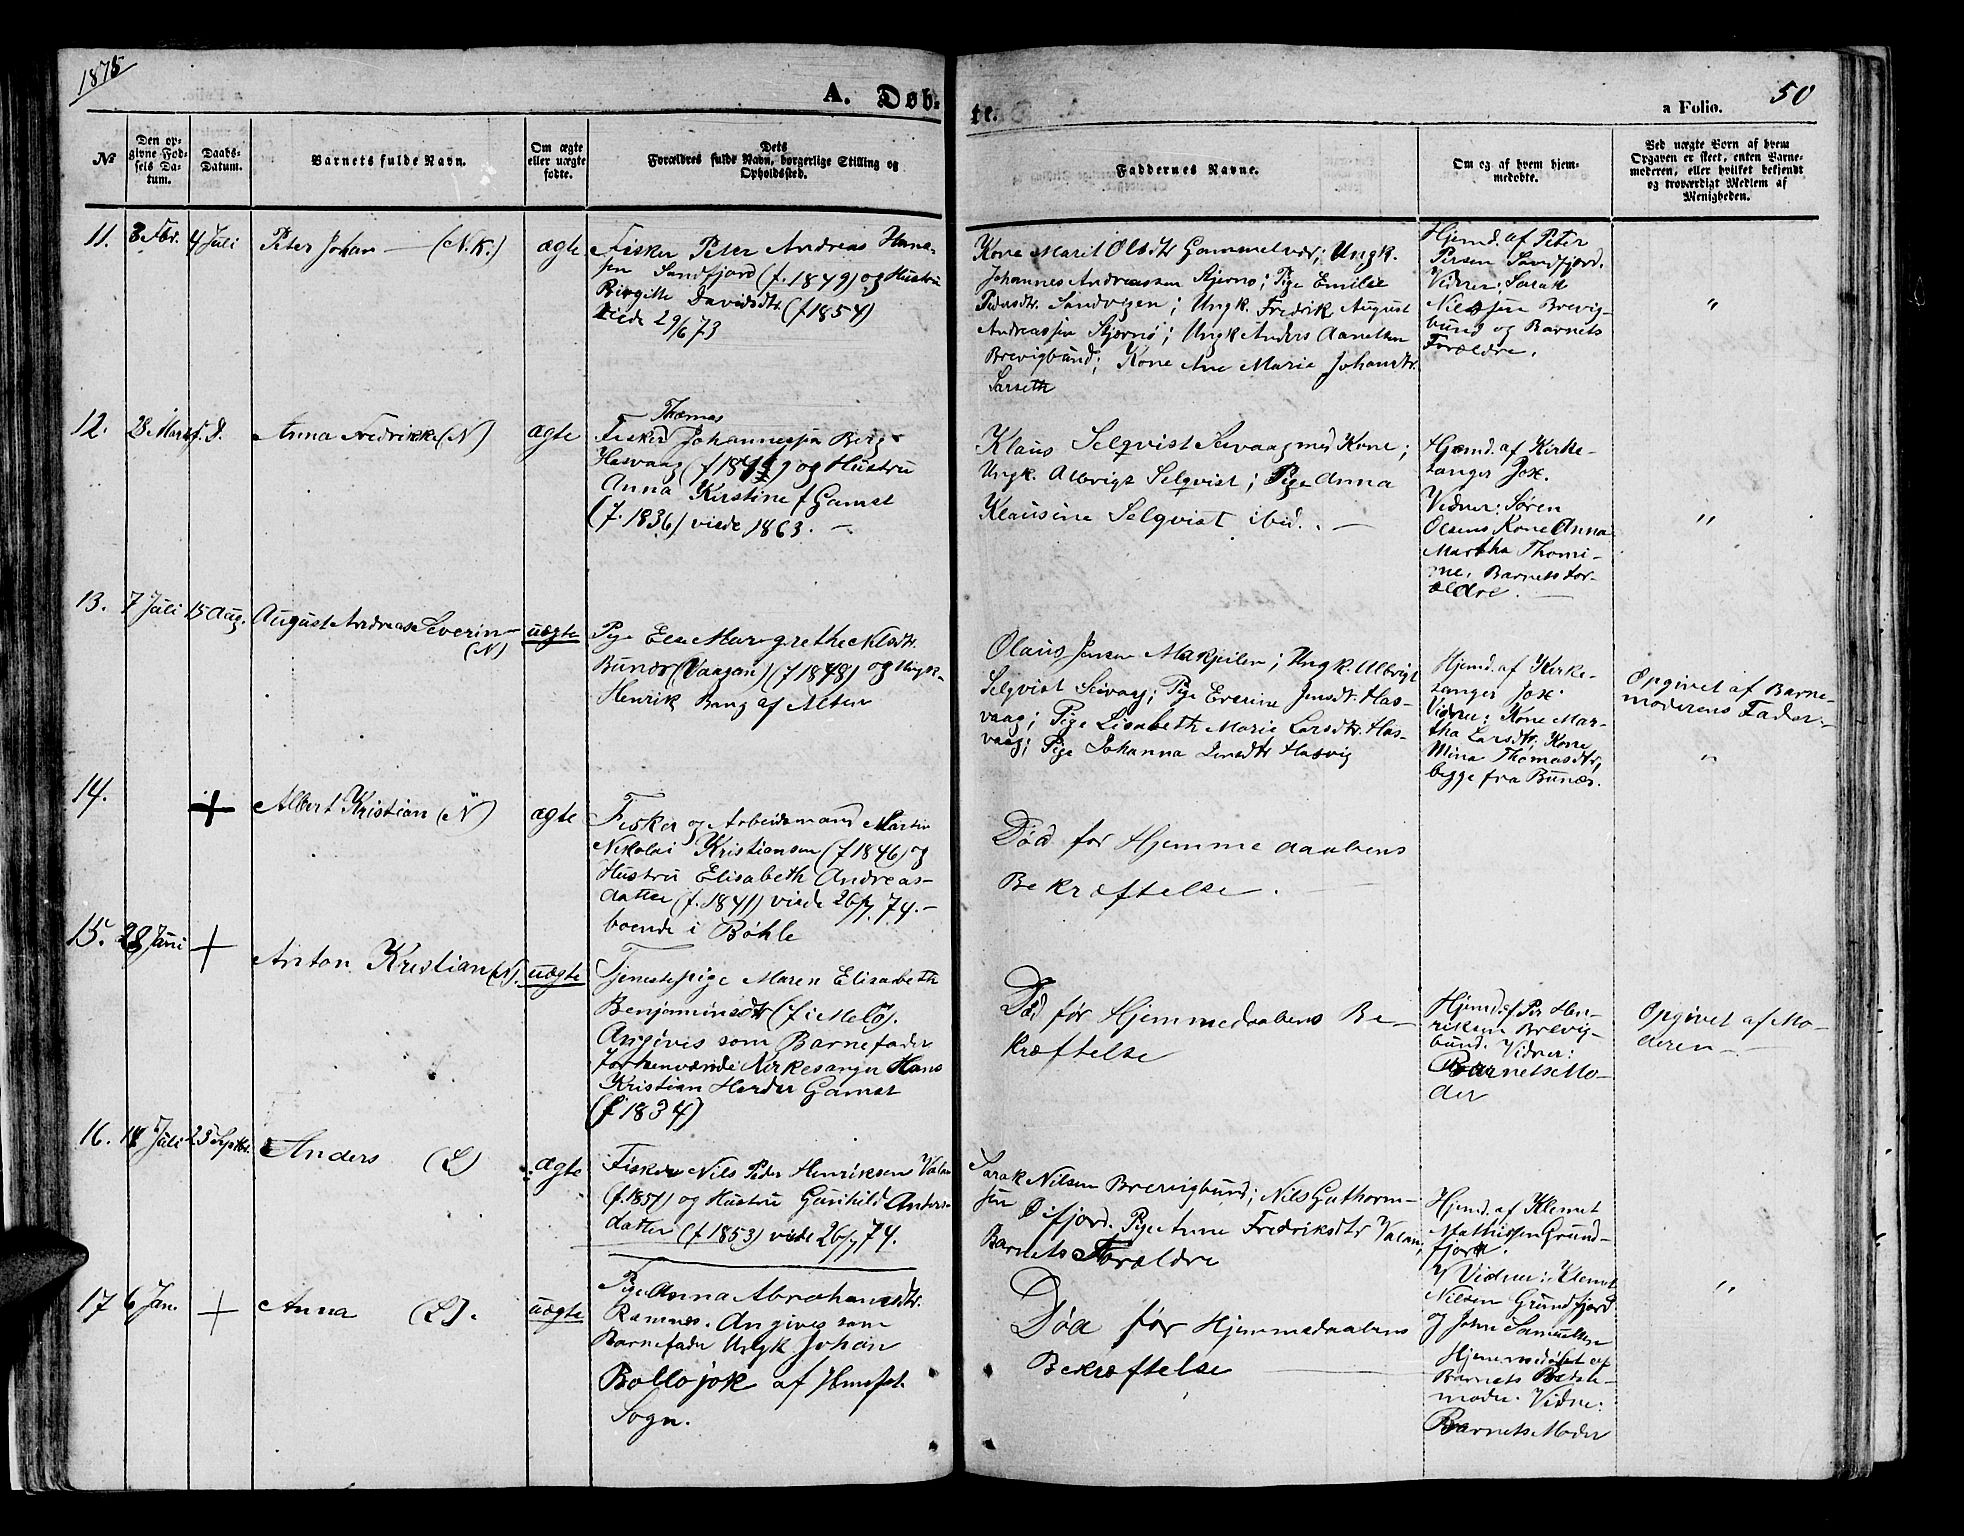 1875
A. Døb-
te.
a Folio.
50
№
Den op-
givne Fød-
sels Da-
tum.
Daabs-
Datum.
Barnets fulde Navn.
Om ægte
eller uægte
fødte.
Dets
Forældres fulde Navn, borgerlige Stilling og
Opholdssted.
Faddernes Navne.
Om og af hvem hjem-
medøbte.
Ved uægte Børn af hvem
Opgaven er skeet, enten Barne-
moderen, eller hvilket bekjendt
og troværdigt Medlem af
Menigheden.
11.
3 Fbr.
4 Juli
Peter Johan — (N.K.)
ægte
Fisker Peter Andreas Han-
sen Sandfjord (f. 1849) og Hustru
Birgitte Davidsdtr. (f 1854)
viede 29/6 73
Kone Marit Olsdtr Gammelvær; Ungk.
Johannes Andreassen Stjernø; Pige Emilie
Pedersdtr. Sandvigen; Ungk. Fredrik August
Andreassen Stjernø; Ungk Anders Aanetsen
Brevigbund; Kone Ane Marie Johansdtr.
Hjemd. af Peter
Persen Sandfjord.
Vidner: Sarak
Nilssen Brevig-
bund og Barnets
Forældre.
"
12.
28 Mars
s. D.
Anna Fredrikke (N)
ægte
Thomas
Fisker Johannessen Berg
Hasvaag og Hustru
Anna Kirstine f Gamst
(f. 1836) viede 1863. —
Klaus Selqvist Sevaag med Kone;
Ungk. Albrigt Selqvist; Pige Anna
Klausine Selqvist ibid. —
Hjemd. af Kirke-
sanger Fox.
Vidner: Søren
Olsens Kone Anna
Martha Thomi-
ne, Barnets For-
ældre. —
"
13.
7 Juli
15 Aug.
August Andreas Severin
(N)
uægte
Pige Else Margrethe Nilsdtr.
Bunæs (Vaagan) (f 1848) og Ungk.
Henrik Bang af Alten
Olaus Jensen; Ungk. Albrigt
Selqvist Sevaag; Pige Everine Jensdtr. Has-
vaag; Pige Lisabeth Marie Larsdtr. Has-
vaag; Pige Johanna Hasvig
Hjemd. af Kirke-
sanger Fox.
Vidner: Kone Mar-
tha Larsdtr; Kone
Mina Thomasdtr,
begge fra Bunæs.
Opgivet af Barne-
moderens Fader. —
"
14.
+
Albert Kristian (N)
ægte
Fisker og Arbeidsmand Martin
Nikolai Kristiansen (f 1846) og
Hustru Elisabeth Andreas-
datter (f. 1841) viede 26/7 74. —
boende i Bøhle
Død før Hjemmedaabens
Bekræftelse. —
15.
28 Juni
+
Anton Kristian (N).
uægte
Tjenestepige Maren Elisabeth
Benjaminsdtr (f i Melø).
Angives som Barnefader
forhenværende Kirkesanger Hans
Kristian Harder Gamst
(f 1834)
Død før Hjemmedaabens Be-
kræftelse
Hjemd. af Per Hen-
riksen Brevig-
bund. Vidner:
Barnets Mo-
der
Opgivet af Mo-
deren —
16.
18 Juli
25 Septbr.
Anders (L)
ægte
Fisker Nils Peder Henriksen Valan
(f. 1851) og Hustru Gunhild Anders-
datter (f 1853) viede 26/7 74.
Sarak Nilsen Brevigbund; Nils Guthorm-
sen Øifjord. Pige Anne Fredriksdtr Valan;
Barnets Forældre
Hjemd. af Klemet
Mathissen Grund-
fjord.
Vidner: Klemet
Nilsen Grundfjord
og John Samuelsen
"
17
6 Jan.
+
Anna (L).
uægte
Pige Anna Abrahamsdtr.
Ramnæs. Angives som
Barnefader Ungk Johan
Bollojok af
Sogn.
Død før Hjemmedaabens
Bekræftelse
Hjemmedøbt af
Barnets Beste-
moder. Vidne:
Barnets Moder